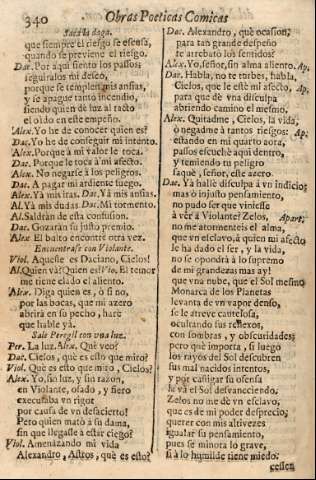 340 Obras Poeticas Comicas
Saca la daga.
que siempre el riesgo se escusa,
quando se previene el riesgo.
Dar. Por aqui siento los passos,
seguiralos mi deseo,
porque se templen mis ansias,
y se apague tanto incendio,
siendo quien dè luz al tacto
el oìdo en este empeño.
Alex. Yo he de conocer quien es?
Dar. Yo he de conseguir mi intento.
Alex. Porque à mi valor le toca.
Dar. Porque le toca à mi afecto.
Alex. No negarse à los peligros.
Dar. A pagar mi ardiente fuego.
Alex. Yà mis iras. Dar. Yà mis ansias.
Al. Yà mis dudas Dar. Mi tormento.
Al. Saldràn de esta confusion.
Dar. Gozaràn su justo premio.
Alex. El bulto encontrè otra vez.
Encuentrase con Violante.
Viol. Aqueste es Daciano, Cielos!
Al. Quien và? Quien es? Vio. El temor
me tiene elado el aliento.
Alex. Diga quien es, ò si no,
por las bocas, que mi azero
abrirà en su pecho, harè
que hable yà.
Sale Peregil con una luz.
Per. La luz. Alex. Què veo?
Dar. Cielos, què es esto que miro?
Viol. Què es esto que miro, Cielos?
Alex. Yo, sin luz, y sin razon,
en Violante, osado, y fiero
executaba vn rigor
por causa de vn desacierto!
Pero quien matò à su dama,
sin que llegasse à estar ciego?
Viol. Amenazando mi vida
Alexandro, Astros, què es esto?
Dar. Alexandro, què ocasion,
para tan grande despeño
te arrebato los sentidos?
Alex. Yo, señor, sin alma aliento. Ap.
Dar. Habla, no te turbes, habla,
Cielos, que le estè mi afecto, Ap.
para que dè vna disculpa
abriendo camino el mesmo.
Alex. Quitadme, Cielos, la vida,
ò negadme à tantos riesgos: Ap.
estando en mi quarto aora,
passos escuchè aqui dentro,
y temiendo tu peligro
saquè, señor, este azero.
Dar. Yà hallè disculpa à vn indicio;
mas ò injusto pensamiento,
no pudo ser que viniesse
à vèr à Violante? Zelos, Apart.
no me atormenteis el alma,
que vn esclavo, à quien mi afecto
le ha dado el ser, y la vida,
no se opondrà à lo supremo
de mi grandezas mas ay!
que vna nube, que el Sol mesmo
Monarca de los Planetas
levanta de vn vapor denso,
se le atreve cautelosa,
ocultando sus reflexos,
con sombras, y obscuridades;
pero què importa, si luego
los rayos del Sol descubren
sus mal nacidos intentos,
y por castigar su ofensa
le và el Sol desvaneciendo.
Zelos no me dè vn esclavo,
que es de mi poder desprecio;
querer con mis altivezes
igualar su pensamiento,
pues se minora lo grave,
si à lo humilde tiene miedo: